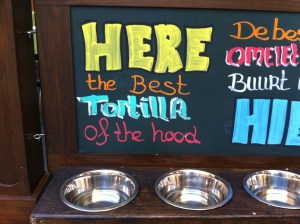 HERE
the Best
Tortilla
of the hood
De bes
OMELET
Buurt
HIE